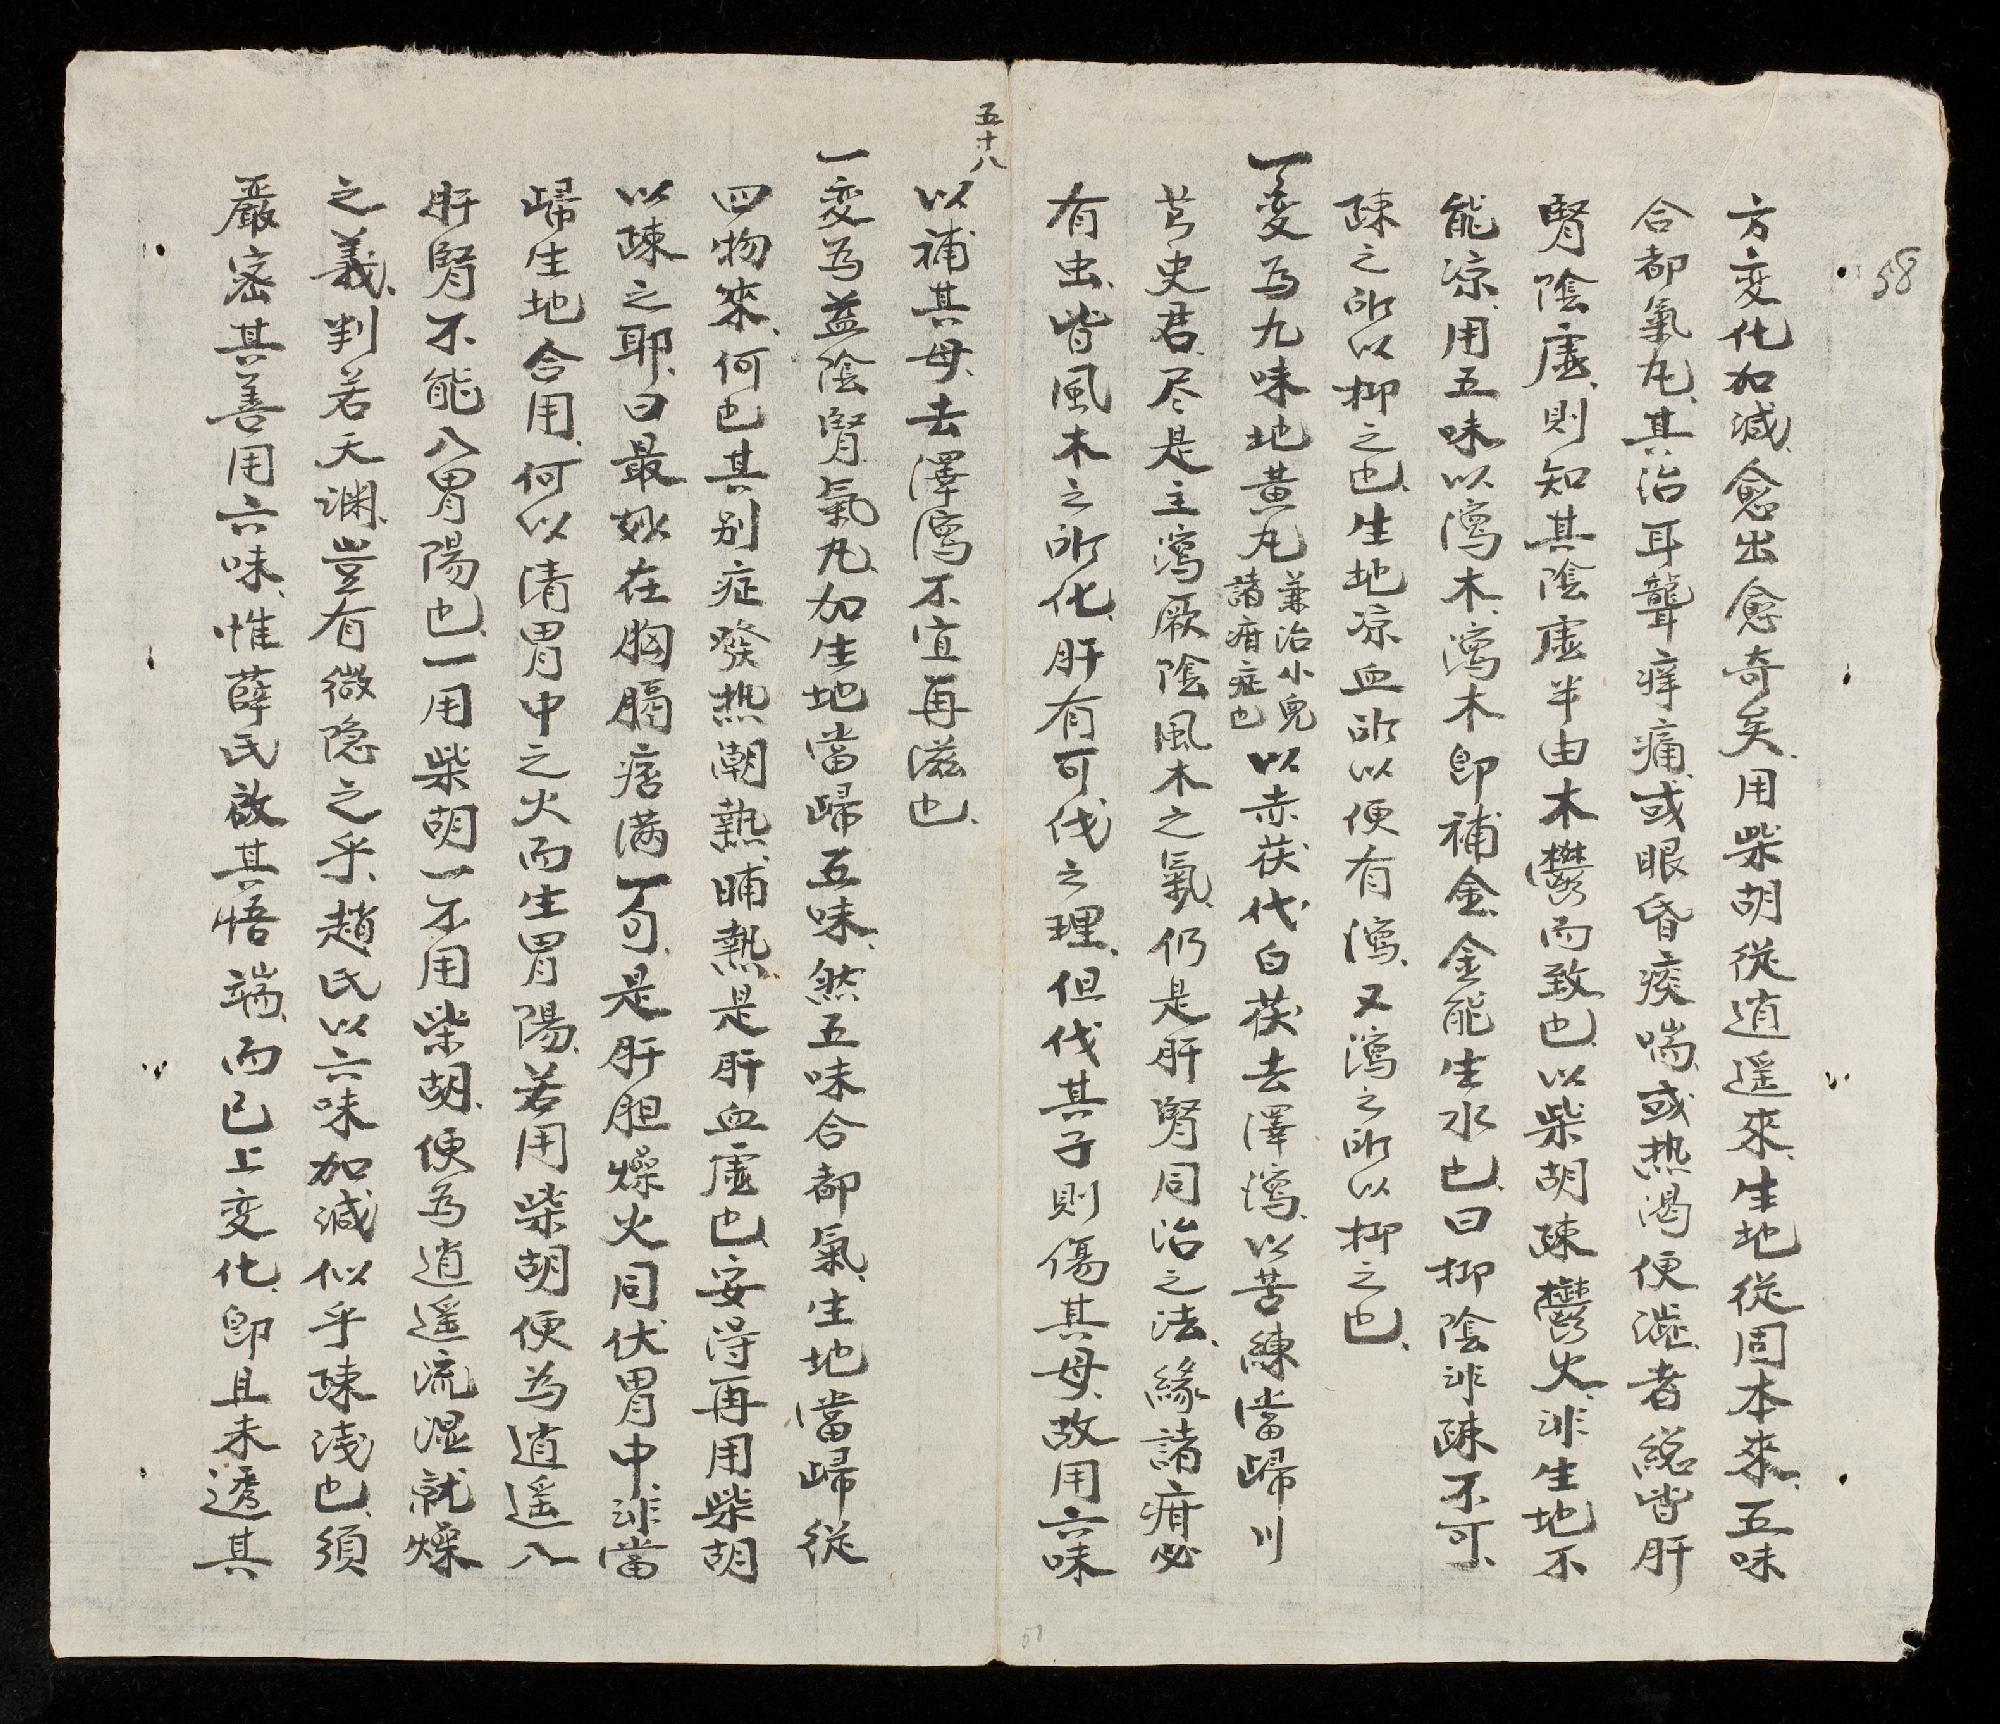 58
方变化加减愈出愈奇矣用柴胡從逍遥來生地從固本來五味
合都氣丸其治耳聾痒痛或眼昏痰喘或热渴便澁者總皆肝
腎陰虚則知其陰虚半由木鬱而致也以柴胡踈鬱火非生地不
能凉用五味以瀉木瀉木卽補金金能生水也曰抑陰非踈不可
踈之所以抑之也生地凉血所以便有瀉又瀉之所以抑之也
一变為九味地黄丸兼治小兒諸疳症也以赤茯代白茯去澤瀉以苦練當歸川
芎史君尽是主瀉厥陰風木之氣仍是肝腎同治之法緣諸疳必
有虫皆風木之所化肝有可伐之理但伐其子則傷其母故用六味
五十八
以補其母去澤瀉不宜再滋也
一变為益陰腎氣丸加生地當歸五味然五味合都氣生地當歸從
四物來何也其别症發热潮熱晡熱是肝血虚也安得再用柴胡
以踈之耶曰最妙在胸膈痞满一句是肝胆燥火同伏胃中非當
歸生地合用何以清胃中之火而生胃陽若用柴胡便為逍遥八
肝腎不能八胃陽也一用柴胡一不用柴胡便為逍遥流湿就燥
之義判若天渊豈有微隐之乎趙氏以六味加减似乎踈浅也須
嚴密其善用六味惟薛氏啟其悟端而已上变化卽且未透其